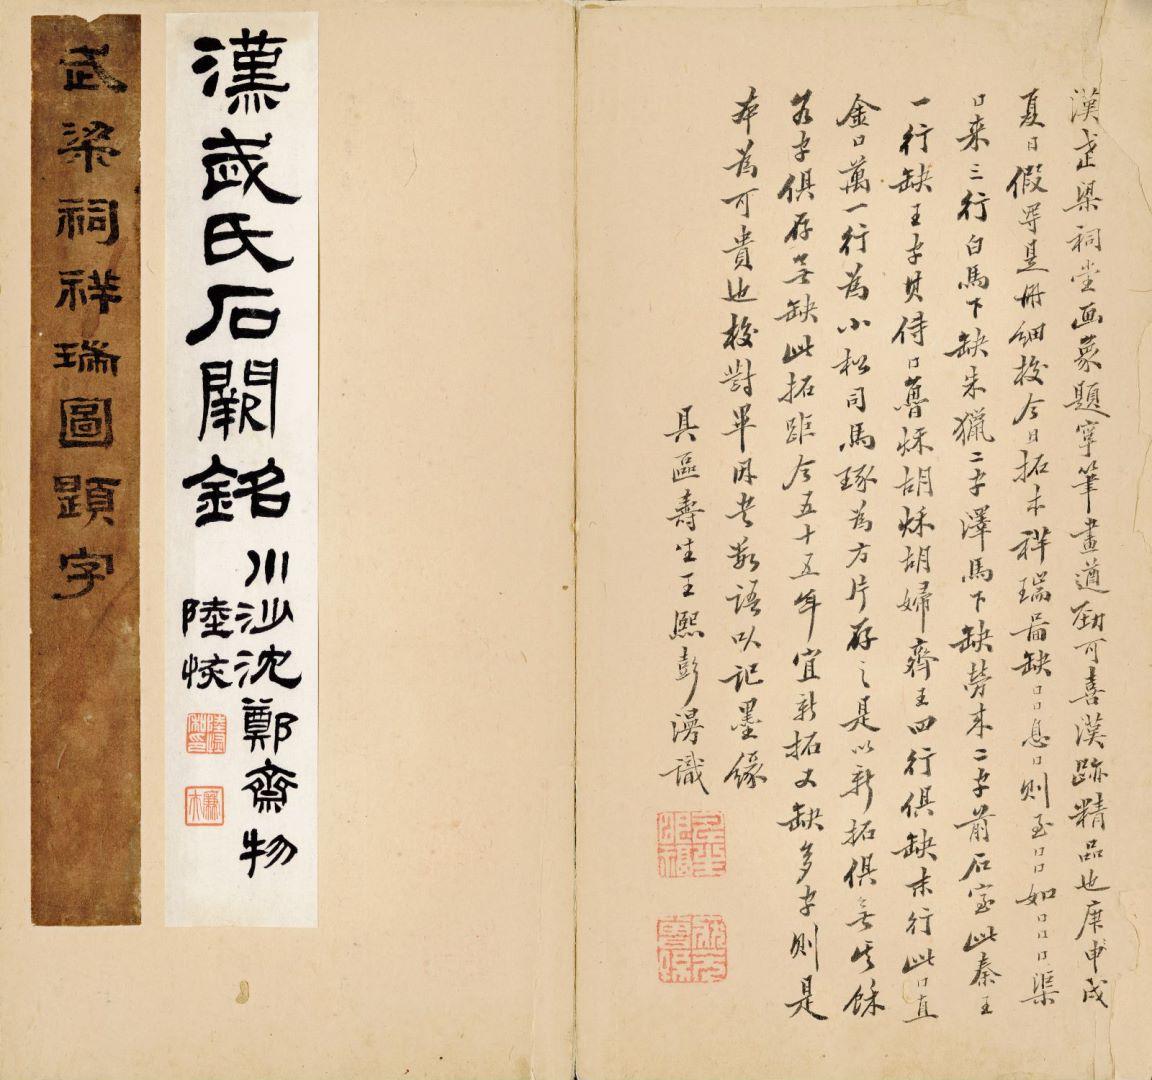 漢武梁祠堂画象題字筆畫遒勁可喜漢跡精品也庚申戌
夏日假得是册細校今日拓本祥瑞圖缺口口息口則至口口如口口口渠
口来三行白馬下缺朱獵二字澤馬下缺勞来二字前石室此秦王
一行缺王字其侍口魯秌胡秌胡婦齊王四行俱缺末行此口直
金口萬一行為小松司馬琢為方片存之是以新拓俱無其餘
各字俱存無缺此拓距今五十五年宜新拓又缺多字則是
本為可貴也校對畢因書數語以記墨緣
具區壽生王熙彭漫識
漢武氏石闕銘
川沙沈鄭齋物
陸恢
武梁祠祥瑞圖題字